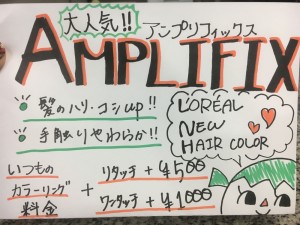 大人気!!
アンプリフィックス
AMPLIFIX
髪のハリ・コシup!!
手触りやわらか!!
L'ORÉAL
NEW
HAIR COLOR
いつもの
カラーリング
料金
+
リタッチ+¥500
ワンタッチ+¥1000